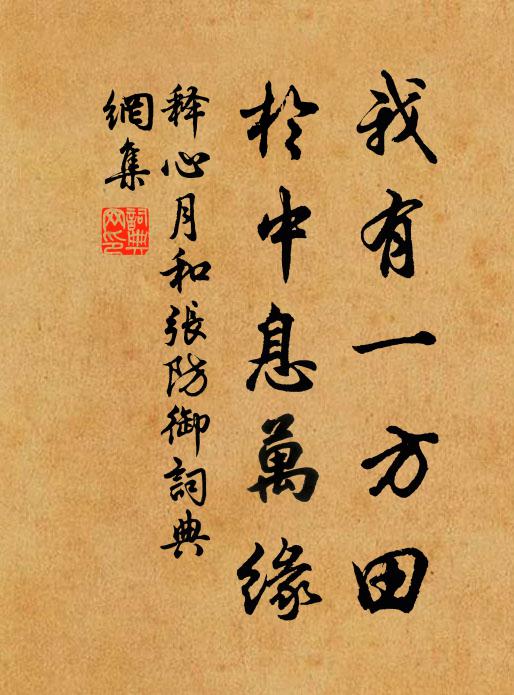 我有一方田
於中息萬緣
释心月和張防御詞典
網集
詞典
网印